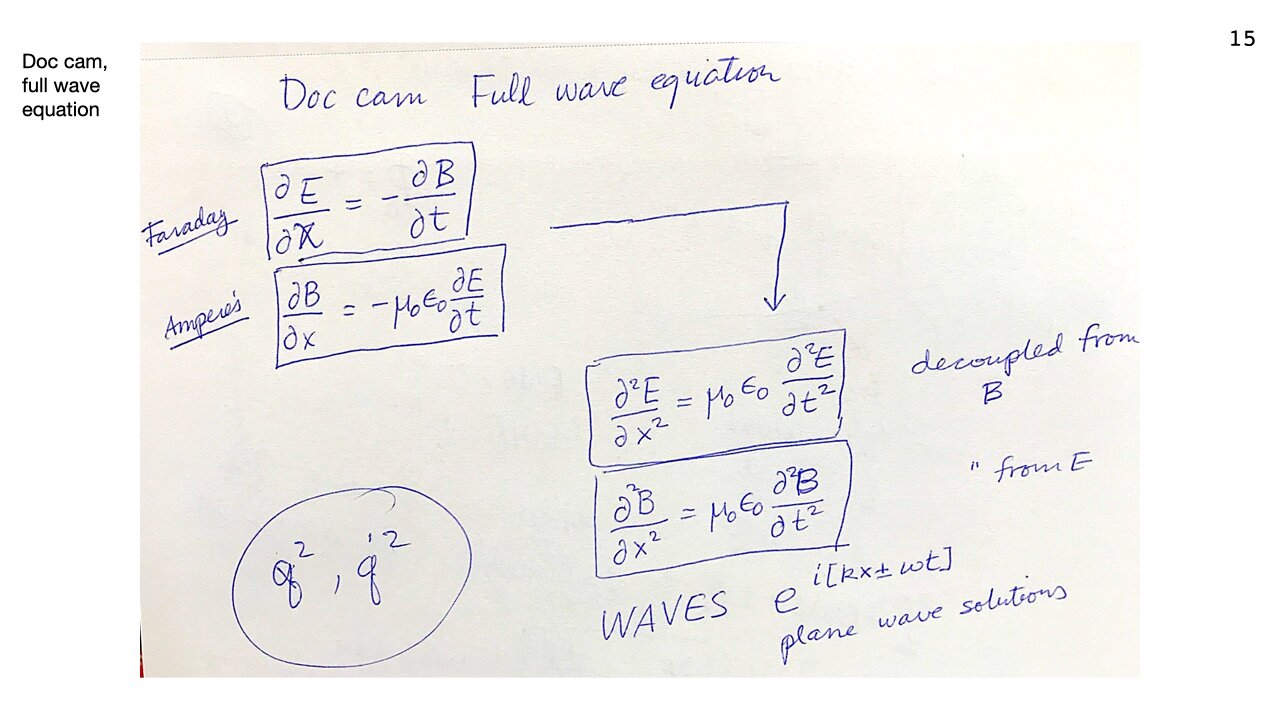 15
Doc cam,
full wave
equation
Doc cam Full wave equation
Faraday ∂E/∂x = -∂B/∂t
Ampere's ∂B/∂x = -μ₀ε₀ ∂E/∂t
∂²E/∂x² = μ₀ε₀ ∂²E/∂t² decoupled from
B
∂²B/∂x² = μ₀ε₀ ∂²B/∂t² " from E
q², q̇²
WAVES e^{i[kx±ωt]}
plane wave solutions